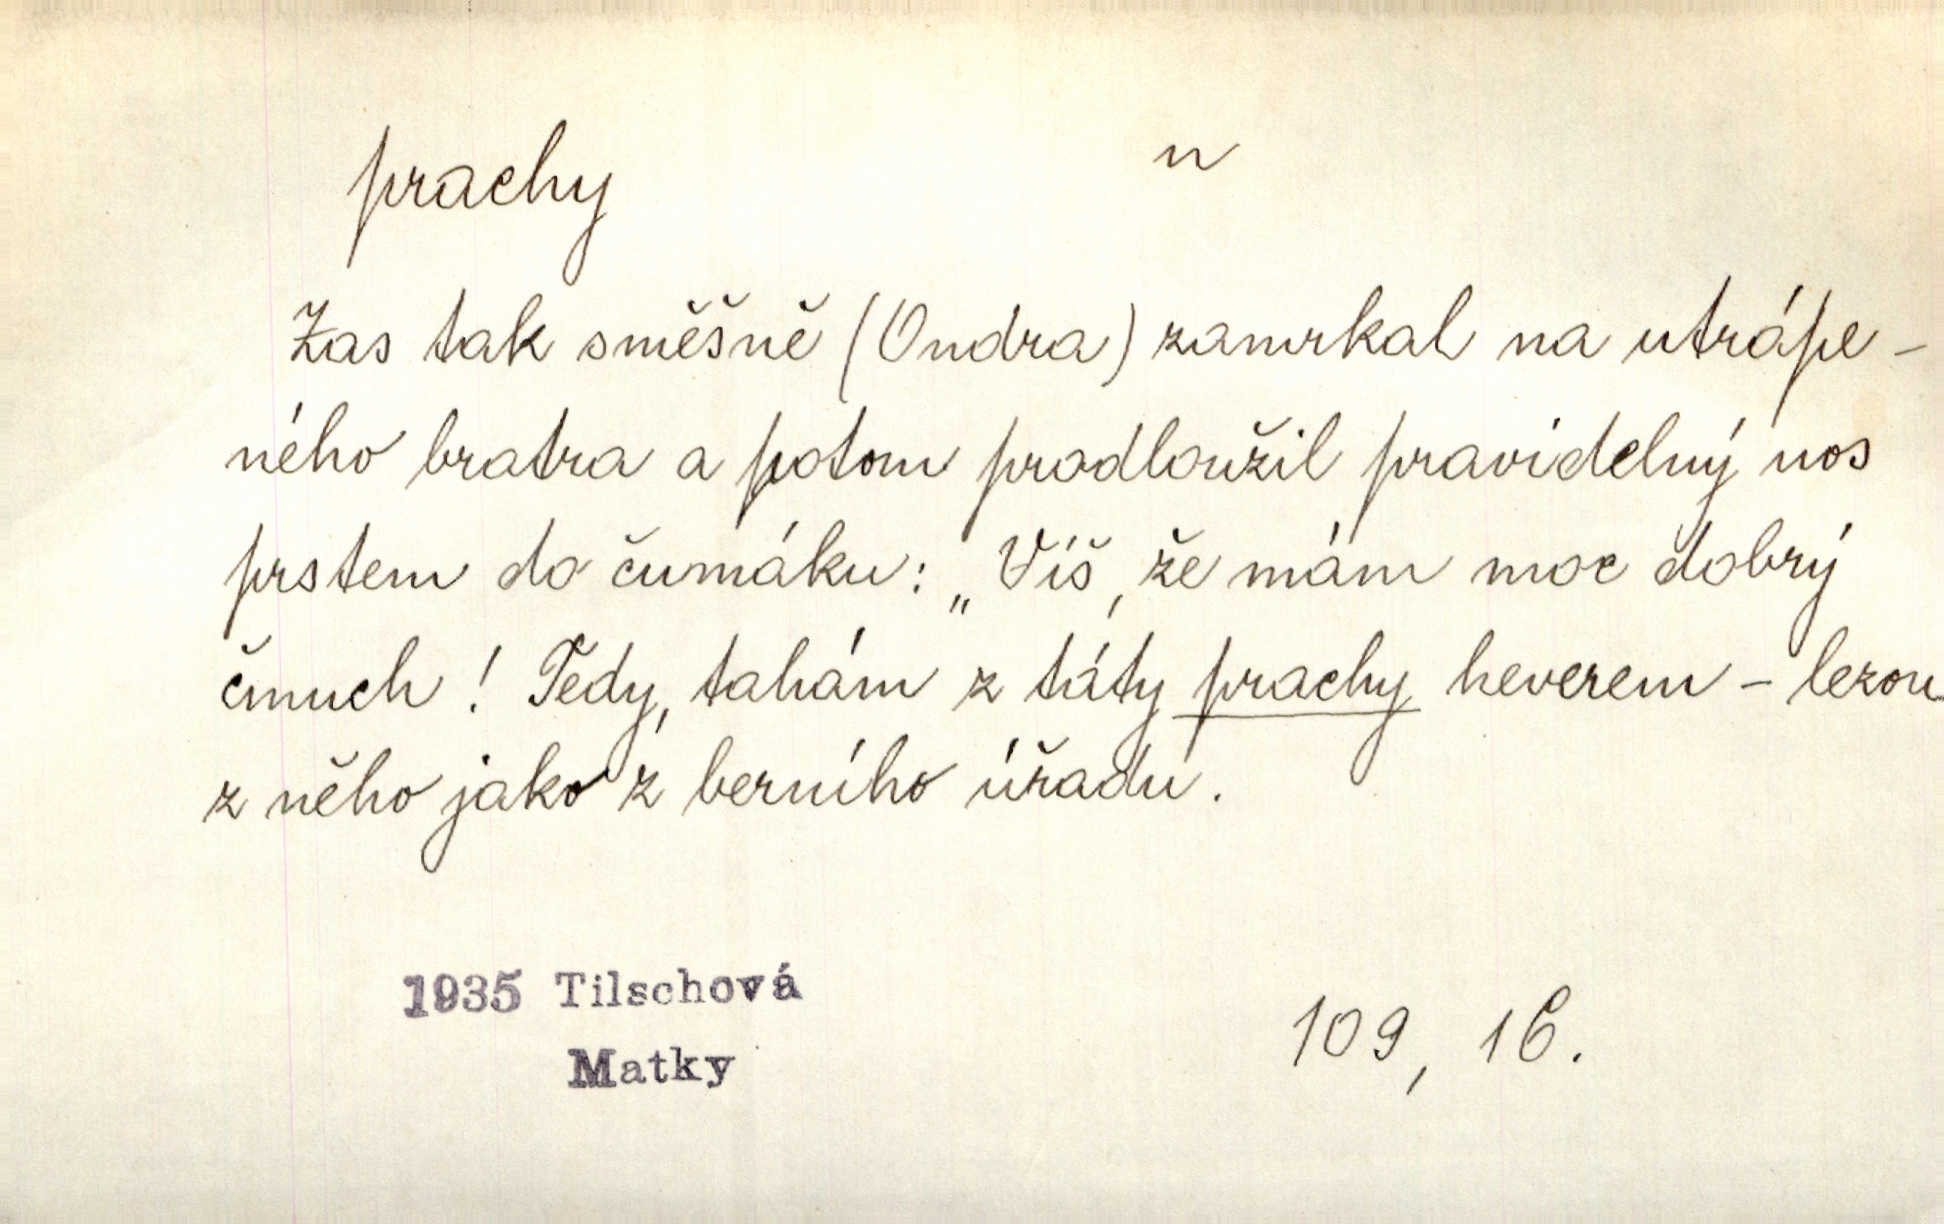 prachy n
Zas tak směšně (Ondra) zamrkal na utrápe-
ného bratra a potom prodloužil pravidelný nos
prstem do čumáku: „Víš, že mám moc dobrý
čmuch! Tedy, tahám z táty prachy heverem - lezou
z něho jako z berního úřadu.
1935 Tilschová
Matky
109, 16.